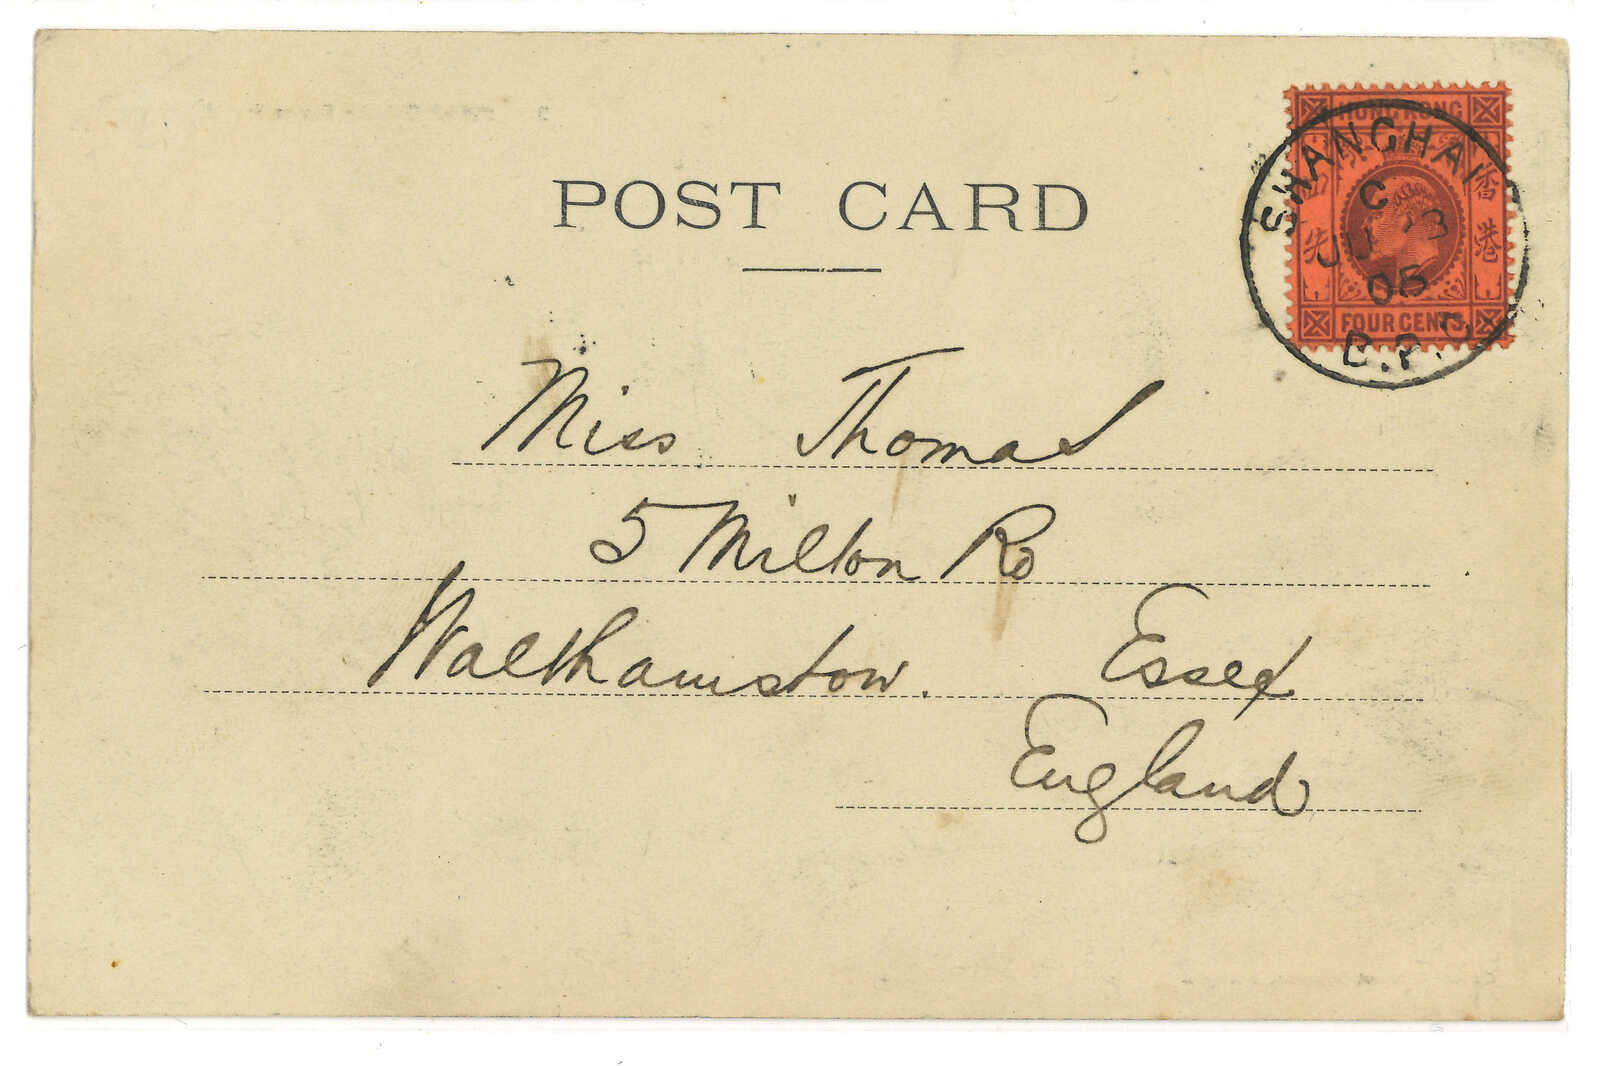 POST CARD
HONG KONG
香港
先
FOUR CENTS
SHANGHAI
C
JU 23
05
B.P.O
Miss Thomas
5 Milton Rd
Walthamstow. Essex
England